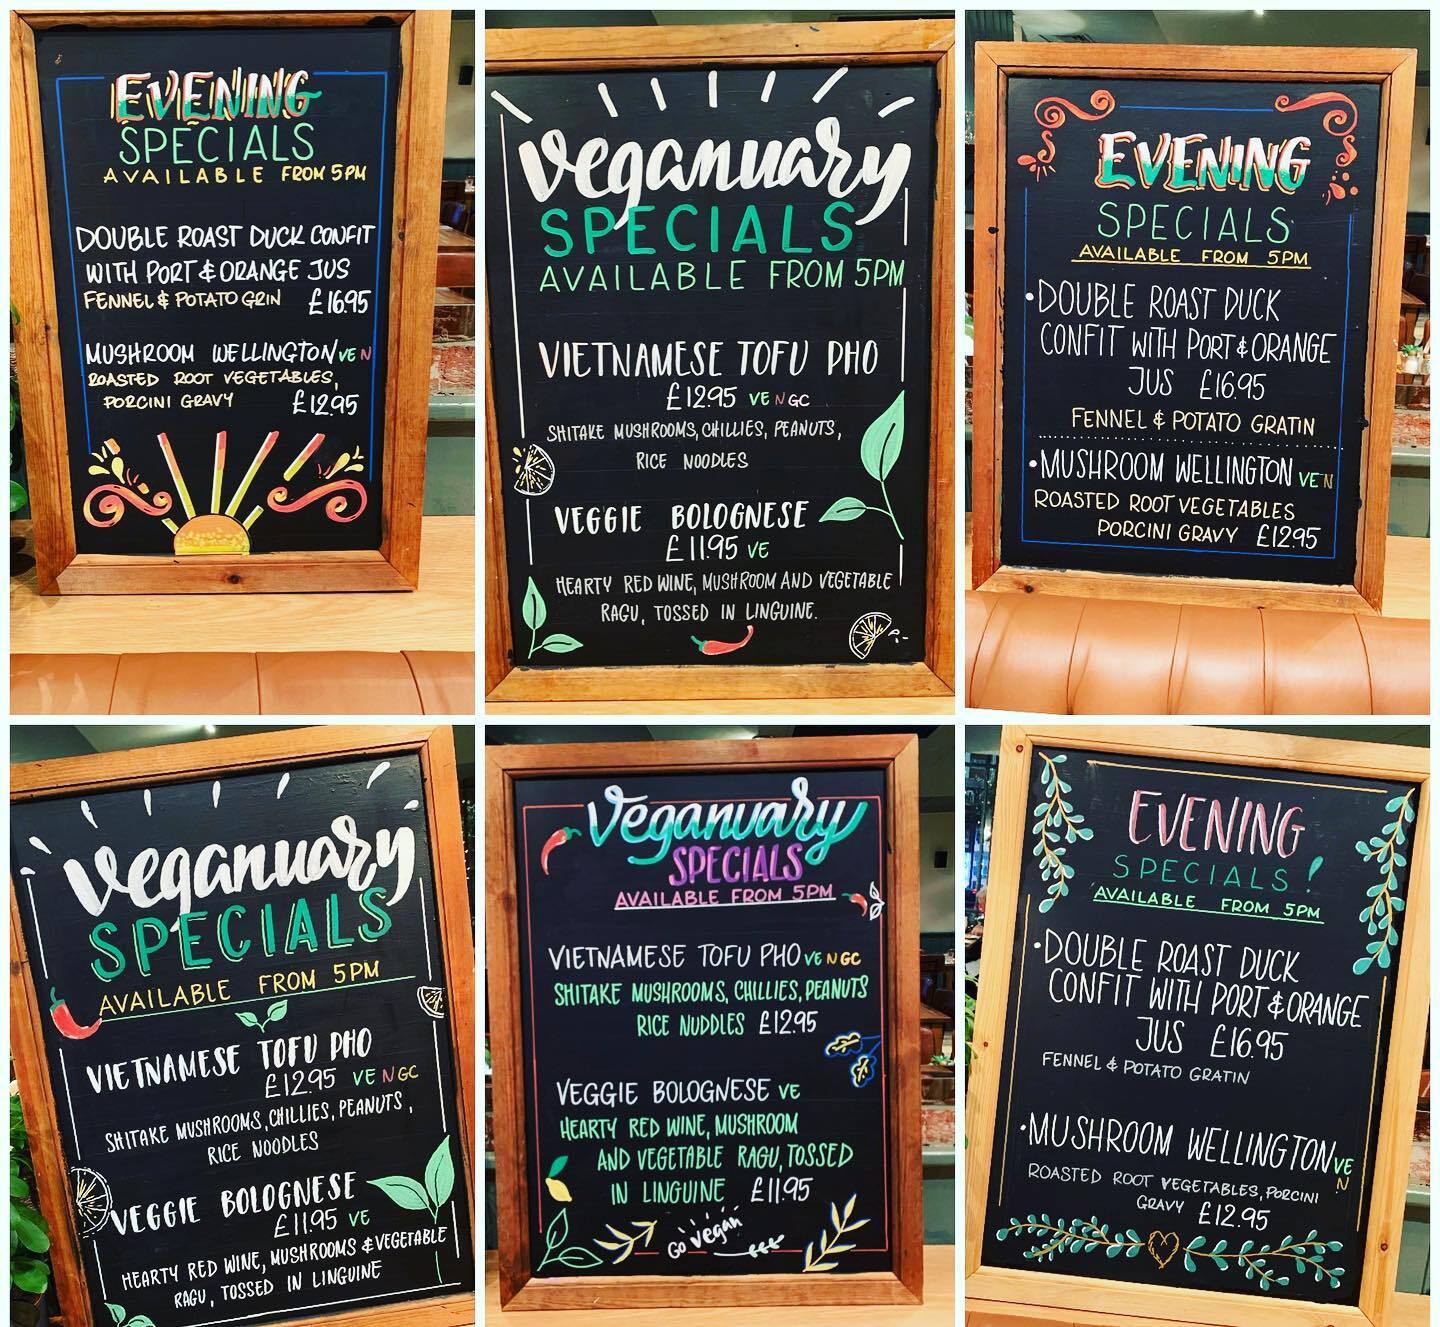 EVENING
SPECIALS
AVAILABLE FROM 5PM
DOUBLE ROAST DUCK CONFIT
WITH PORT & ORANGE JUS
FENNEL & POTATO GRIN £16.95
MUSHROOM WELLINGTON VE N
ROASTED ROOT VEGETABLES,
PORCINI GRAVY £12.95
Veganuary
SPECIALS
AVAILABLE FROM 5PM
VIETNAMESE TOFU PHO
£12.95 VE N GC
SHITAKE MUSHROOMS, CHILLIES, PEANUTS,
RICE NOODLES
VEGGIE BOLOGNESE
£11.95 VE
HEARTY RED WINE, MUSHROOM AND VEGETABLE
RAGU, TOSSED IN LINGUINE.
EVENING
SPECIALS
AVAILABLE FROM 5PM
•DOUBLE ROAST DUCK
CONFIT WITH PORT & ORANGE
JUS £16.95
FENNEL & POTATO GRATIN
•MUSHROOM WELLINGTON VE N
ROASTED ROOT VEGETABLES
PORCINI GRAVY £12.95
Veganuary
SPECIALS
AVAILABLE FROM 5PM
VIETNAMESE TOFU PHO
£12.95 VE N GC
SHITAKE MUSHROOMS, CHILLIES, PEANUTS,
RICE NOODLES
VEGGIE BOLOGNESE
£11.95 VE
HEARTY RED WINE, MUSHROOMS & VEGETABLE
RAGU, TOSSED IN LINGUINE
Veganuary
SPECIALS
AVAILABLE FROM 5PM
VIETNAMESE TOFU PHO VE N GC
SHITAKE MUSHROOMS, CHILLIES, PEANUTS
RICE NUDDLES £12.95
VEGGIE BOLOGNESE VE
HEARTY RED WINE, MUSHROOM
AND VEGETABLE RAGU, TOSSED
IN LINGUINE £11.95
Go vegan
EVENING
SPECIALS!
AVAILABLE FROM 5PM
•DOUBLE ROAST DUCK
CONFIT WITH PORT & ORANGE
JUS £16.95
FENNEL & POTATO GRATIN
•MUSHROOM WELLINGTON VE
N
ROASTED ROOT VEGETABLES, PORCINI
GRAVY £12.95